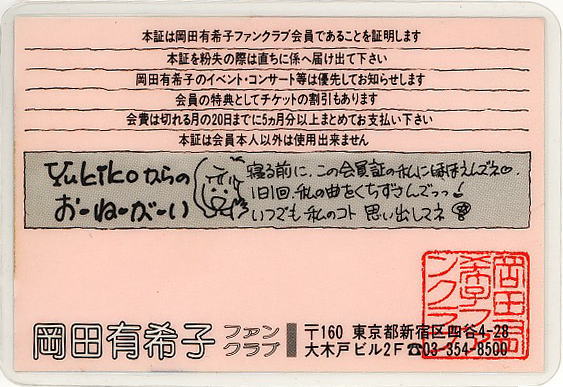 本証は岡田有希子ファンクラブ会員であることを証明します
本証を紛失の際は直ちに係へ届け出て下さい
岡田有希子のイベント・コンサート等は優先してお知らせします
会員の特典としてチケットの割引もあります
会費は切れる月の20日までに5ヵ月分以上まとめてお支払い下さい
本証は会員本人以外は使用出来ません
Yukikoからの
おーねーがーい
寝る前に、この会員証の私にほほえんでネ♡.
1日1回、私の曲をくちずさんでっっ!
いつでも私のコト思い出してネ
岡田有希子ファンクラブ
〒160 東京都新宿区四谷4-28
大木戸ビル2F☎03-354-8500
岡田有希子ファンクラブ